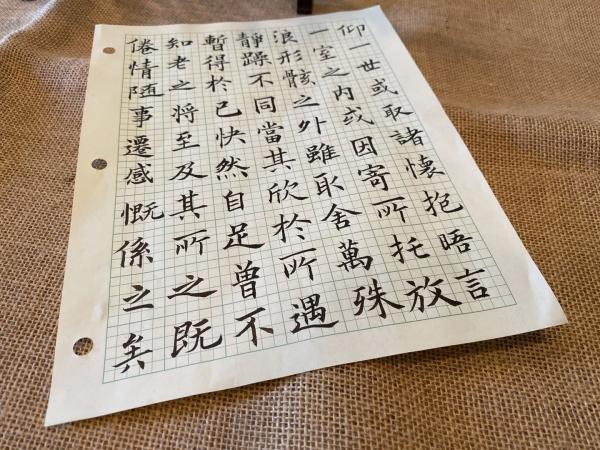 仰一世或取諸懷抱晤言
一室之内或因寄所托放
浪形骸之外雖取舍萬殊
靜躁不同當其欣於所遇
暫得於己快然自足曾不
知老之將至及其所之既
倦情随事遷感慨係之矣